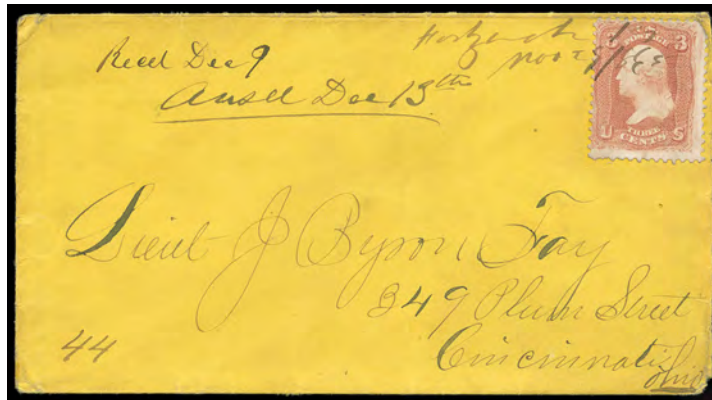 Recd Dec 9
Ansd Dec 13th
Nov 23/63
3 POSTAGE 3
U THREE CENTS S
Lieut J Byron Fay
349 Plum Street
Cincinnati
Ohio
44